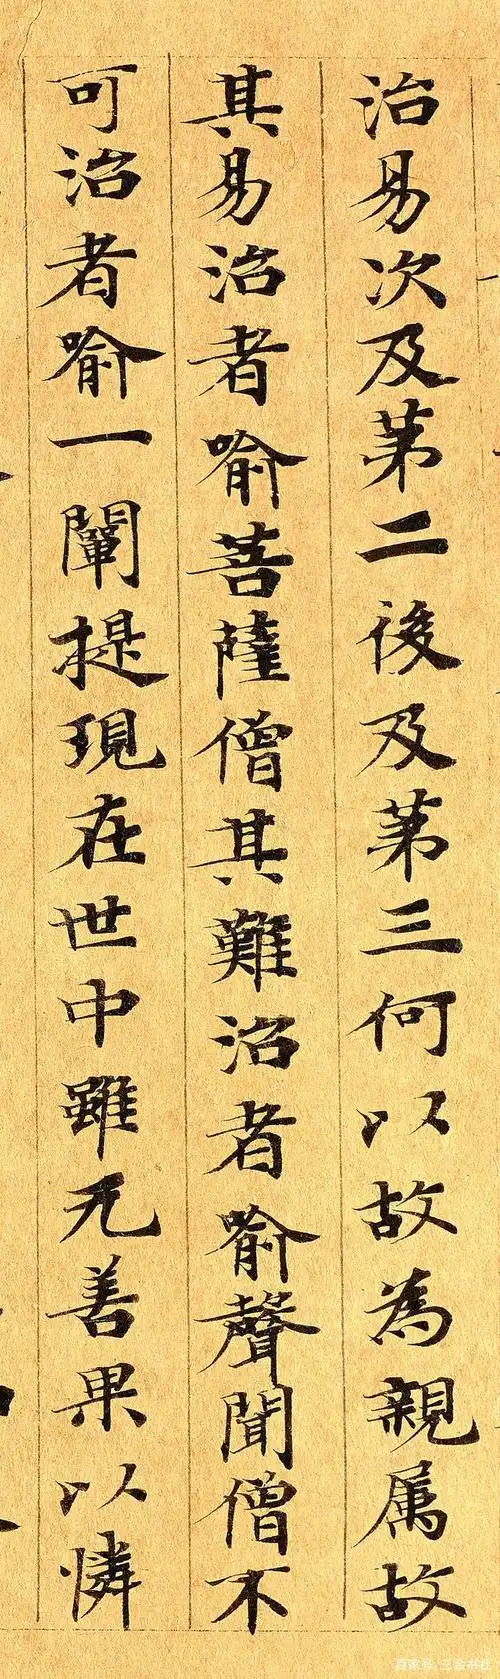 治易次及第二後及第三何以故為親属故
其易治者喻菩薩僧其難治者喻聲聞僧不
可治者喻一闡提現在世中雖无善果以憐
百家号·三金书社